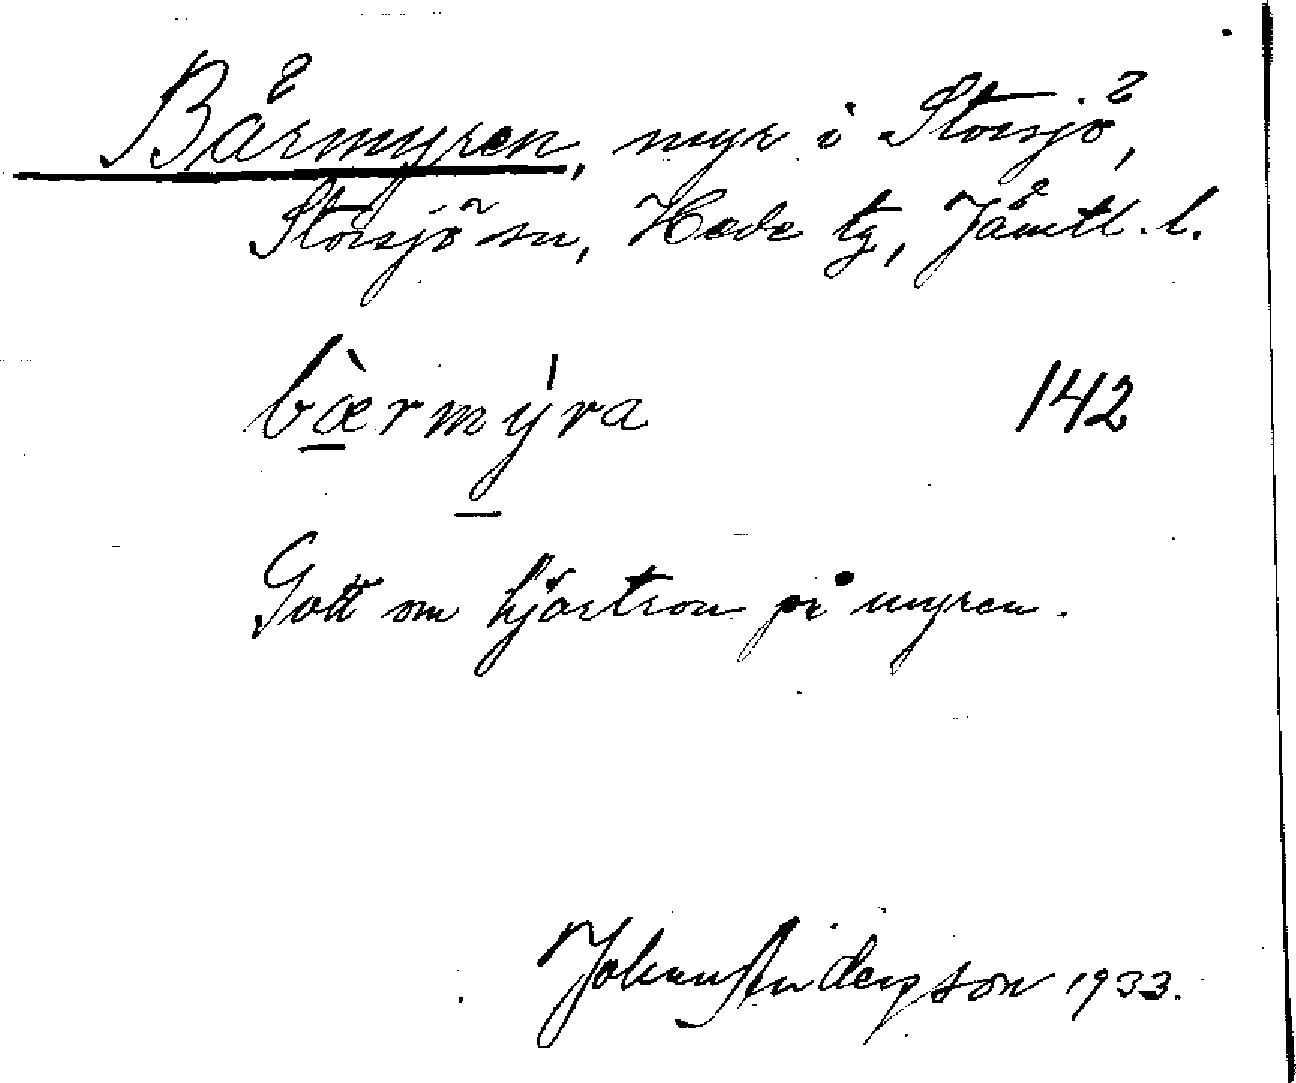 Bärmyren, myr i Storsjö,
Storsjö sn, Hede tg, Jämtl. l.
bæ̀rmýra 142
Gott om hjortron på myren.
Johan Anderson 1933.